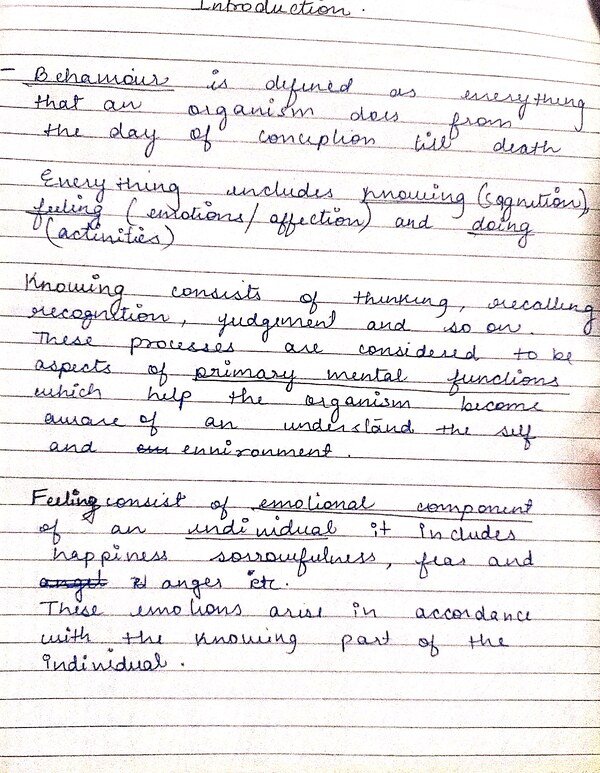 Introduction.
- Behaviour is defined as everything
that an organism does from
the day of conception till death
Everything includes knowing (cognition),
feeling (emotions/affection) and doing
(activities)
Knowing consists of thinking, recalling
recognition, judgement and so on.
These processes are considered to be
aspects of primary mental functions
which help the organism become
aware of an understand the self
and environment.
Feeling consist of emotional component
of an individual it includes
happiness sorrowfulness, fear and
anger etc.
These emotions arise in accordance
with the knowing part of the
individual.